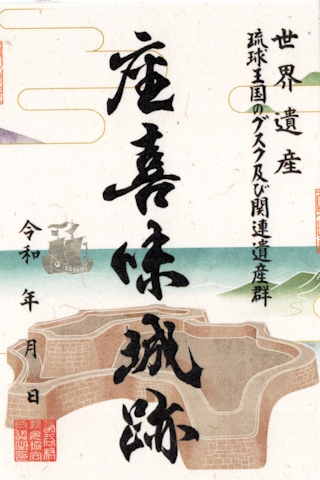 世界遺産
琉球王国のグスク及び関連遺産群
座喜味城跡
令和 年 月 日